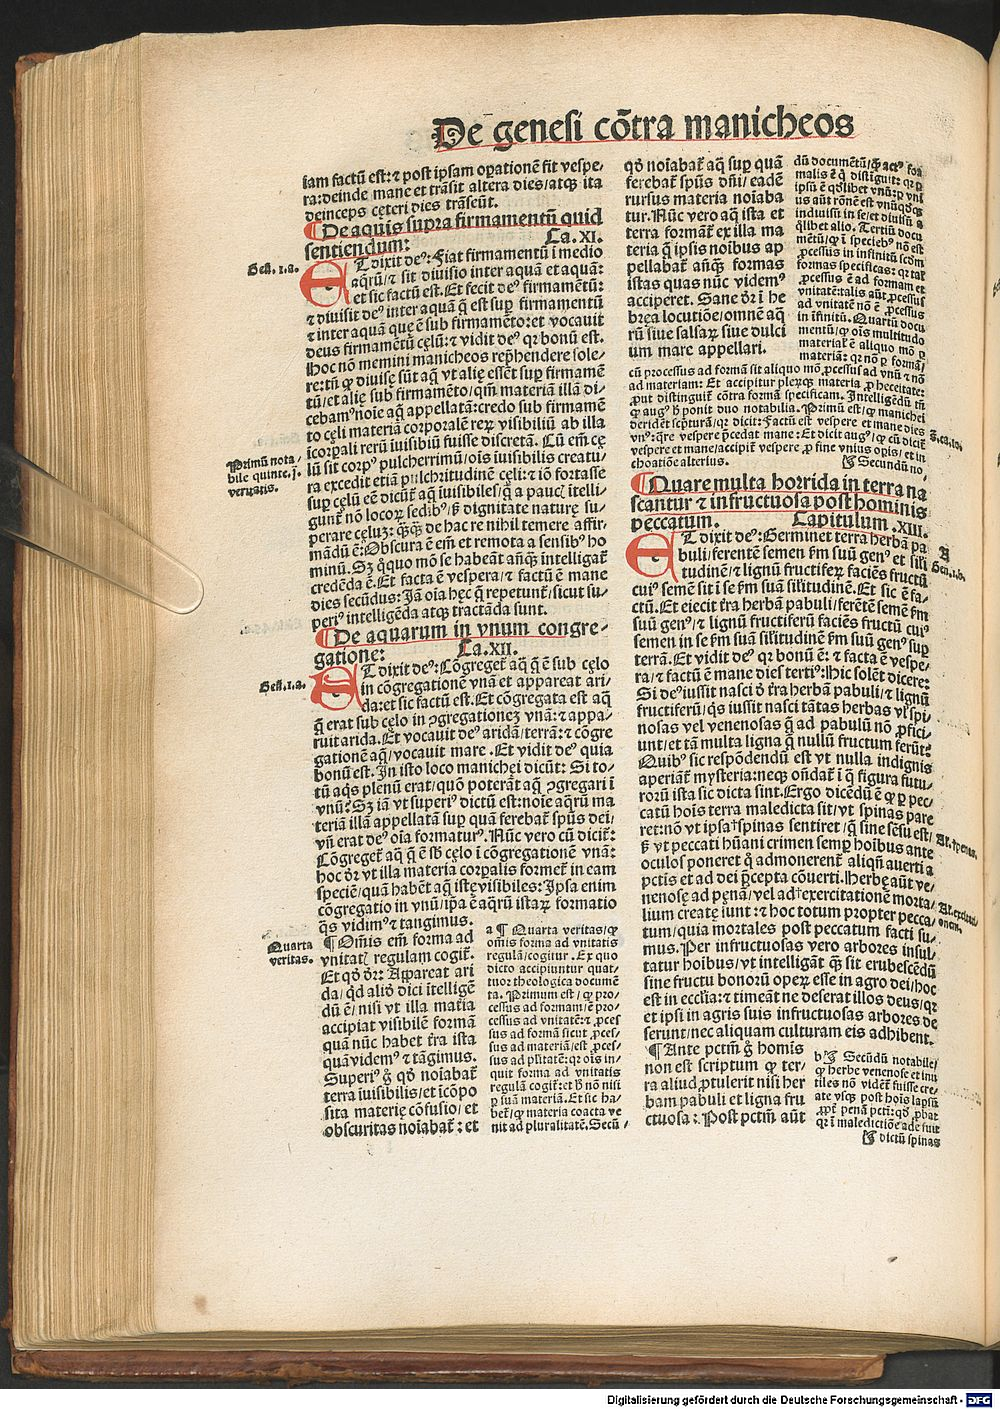 De genesi cōtra manicheos
iam factū est: ⁊ post ipsam oꝑationē fit vespe-
ra: deinde mane et trāsit altera dies/ atqꝫ ita
deinceps cęteri dies trāseūt.
¶ De aquis supra firmamentū quid
sentiendum: Ca. XI.
Geñ. i. a.
ET dixit deꝰ: Fiat firmamentū ī medio
aqꝝ/ ⁊ sit diuisio inter aquā et aquā:
et sic factū est. Et fecit deꝰ firmamētū:
⁊ diuisit deꝰ inter aquā q̄ est suꝑ firmamentū
⁊ inter aquā quę ē sub firmamēto: et vocauit
deus firmamētū cęlū: ⁊ vidit deꝰ qꝛ bonū est.
Hoc nō memini manicheos rep̄hendere sole-
re: tñ ꝙ diuisę sūt aq̄ vt alię essēt suꝑ firmamē
tū/ et alię sub firmamēto/ qm̄ materiā illā di-
cebamꝰ noīe aq̄ appellatā: credo sub firmamē
to cęli materiā corporalē reꝝ visibiliū ab illa
icorꝑali rerū iuisibiliū fuisse discretā. Cū em̄ cę
Primū nota-
bile quinte. j.
veritatis.
lū sit corpꝰ pulcherrimū/ oīs iuisibilis creatu-
ra excedit etiā pulchritudinē cęli: ⁊ iō fortasse
suꝑ cęlū eē dicūt᷑ aq̄ iuisibiles/ q̄ a pauc̄ ītelli-
gunt᷑ nō locoꝝ sedibꝰ/ ꝫ dignitate naturę su-
perare cęluꝫ: q̄ꝫq̄ꝫ de hac re nihil temere affir-
mādū ē: Obscura ē em̄ et remota a sensibꝰ ho
minū. Sꝫ q̄quo mō se habeāt añq̄ꝫ intelligat᷑
credēda ē. Et facta ē vespera/ ⁊ factū ē mane
dies secūdus: Jā oīa hęc q̄ repetunt᷑/ sicut su-
periꝰ intelligēda atqꝫ tractāda sunt.
¶ De aquarum in vnum congre-
gatione: Ca. XII.
Geñ. i. a.
ET dixit deꝰ: Cōgreget᷑ aq̄ q̄ ē sub cęlo
in cōgregationē vnā et appareat ari-
da: et sic factū est. Et cōgregata est aq̄
q̄ erat sub cęlo in ꝯgregationeꝫ vnā: ⁊ appa-
ruit arida. Et vocauit deꝰ aridā/ terrā: ⁊ cōgre
gationē aq̄/ vocauit mare. Et vidit deꝰ quia
bonū est. Jn isto loco manichei dicūt: Si to-
tū aq̄s plenū erat/ quō poterāt aq̄ ꝯgregari ī
vnū: Sꝫ iā vt superiꝰ dictū est: noīe aqꝝ ma
teriā illā appellatā suꝑ quā ferebat᷑ spūs dei/
vñ erat deꝰ oīa formaturꝰ. Nūc vero cū dicit᷑:
Cōgreget᷑ aq̄ q̄ ē sb̄ cęlo ī cōgregationē vnā:
hoc dr̄ vt illa materia corꝑalis formet᷑ in eam
speciē/ quā habēt aq̄ istę visibiles: Jpsa enim
cōgregatio in vnū/ ip̄a ē aqꝝ istaꝝ formatio
q̄s vidimꝰ ⁊ tangimus.
Quarta
veritas.
¶ Om̄is em̄ forma ad
vnitatꝭ regulam cogit᷑.
Et qd̄ dr̄: Appareat ari
da/ qd̄ aliđ dici ītelligē
dū ē/ nisi vt illa mat̄ia
accipiat visibilē formā
quā nūc habet t̄ra ista
quā videmꝰ ⁊ tāgimus.
Superiꝰ g̊ qd̄ noīabat᷑
terra iuisibilis/ et īcōpo
sita materię cōfusio/ et
obscuritas noīabat᷑: et
a ¶ Quarta veritas/ ꝙ
om̄is forma ad vnitatis
regulā/ cogitur. Ex quo
dicto accipiuntur quat-
tuor theologica documē
ta. Primum est/ ꝙ pro-
cessus ad formam/ ē pro-
cessus ad vnitatē: ⁊ ꝓces
sus ad formā sicut ꝓces-
sus ad materiā/ est ꝓces-
sus ad pl̄itatē: qꝛ ois in-
quit forma ad vnitatis
regulā cogit᷑: et b̄ nō nisi
ꝑ suā materiā. Et sic ha-
bet᷑/ ꝙ materia coacta ve
nit ad pluralitatē. Secū-
qd̄ noīabat᷑ aq̄ suꝑ quā
ferebat᷑ spūs dn̄i/ eadē
rursus materia noīaba
tur. Nūc vero aq̄ ista et
terra formāt᷑ ex illa ma
teria q̄ ipsis noībus ap
pellabat᷑ añq̄ꝫ formas
istas quas nūc videmꝰ
acciperet. Sane dr̄ ī he
bręa locutiōe/ omnē aq̄
rū siue salsaꝝ siue dulci
um mare appellari.
dū documētū/ ꝙ actꝰ for
malis ē q̄ distīguit: qꝛ ꝑ
ipsū ē qd̄libet vnū: ꝑ vnī
us aūt rōnē est vnūqd̄qꝫ
indiuisū in se/ et diuisū a
q̄libet alio. Tertiū docu
mētū/ ꝙ ī speciebꝰ nō est
ꝓcessus in infinitū scdm
formas specificas: qꝛ talꝭ
ꝓcessus ē ad formam et
vnitatē: talis aūt ꝓcessus
ad vnitatē nō ē ꝓcessus
in īfinitū. Quartū docu
mentū/ ꝙ oīs multitudo
materiat᷑ ē aliquo mō ꝑ
materiā: qꝛ nō ꝑ formā/
cū processus ad formā sit aliquo mō ꝓcessus ad vnū ⁊ nō
ad materiam: Et accipitur pleꝝqꝫ materia ꝓ hecceitate:
ꝓut distinguit᷑ cōtra formā specificam. Jntelligēdū tñ
ꝙ augꝰ b̄ ponit duo notabilia. Primū est/ ꝙ manichei
deridēt sc̄pturā/ qꝛ dicit: Factū est vespere et mane dies
vnꝰ: q̄re vespere p̄cedat mane: Et dicit augꝰ/ ꝙ cū dicit᷑
vespere et mane/ accipit᷑ vespere ꝓ fine vnius opis/ et in
choatiōe alterius. Secundū no
¶ Quare multa horrida in terra na
scantur ⁊ infructuosa post hominis
peccatum. Capitulum .XIII.
B
Geñ. i. b.
ET dixit deꝰ: Germinet terra herbā pa
buli/ ferentē semen f̄m suū genꝰ et sil̄i
tudinē/ ⁊ lignū fructifeꝝ faciēs fructū
cuiꝰ semē sit ī se f̄m suā sil̄itudinē. Et sic ē fa-
ctū. Et eiecit t̄ra herbā pabuli/ ferētē semē f̄m
suū genꝰ/ ⁊ lignū fructiferū faciēs fructū cuiꝰ
semen in se f̄m suā sil̄itudinē f̄m suū genꝰ suꝑ
terrā. Et vidit deꝰ qꝛ bonū ē: ⁊ facta ē vespe-
ra/ ⁊ factū ē mane dies tertiꝰ: Hic solēt dicere:
Si deꝰ iussit nasci d̄ t̄ra herbā pabuli/ ⁊ lignū
fructiferū/ qs iussit nasci tātas herbas vl̄ spi-
nosas vel venenosas q̄ ad pabulū nō ꝓfici-
unt/ et tā multa ligna q̄ nullū fructum ferūt:
Quibꝰ sic respōdendū est vt nulla indignis
aperiāt᷑ mysteria: neqꝫ oñdat᷑ ī q̄ figura futu-
roꝝ ista sic dicta sint. Ergo dicēdū ē ꝙ ꝑ pec-
catū hoīs terra maledicta sit/ vt spinas pare
ret: nō vt ipsa†spinas sentiret/ q̄ sine sēsu est/
ꝫ vt peccati hūani crimen semꝑ hoībus ante
oculos poneret᷑ q̄ admonerent᷑ aliqn̄ auerti a
pctis et ad dei p̄cepta cōuerti. Herbę aūt ve-
nenosę ad pęnā/ vel ad†exercitationē morta-
lium creatę sunt: ⁊ hoc totum propter pecca-
tum/ quia mortales post peccatum facti su-
mus. Per infructuosas vero arbores insul-
tatur hoībus/ vt intelligāt q̄ꝫ sit erubescēdū
sine fructu bonorū operę esse in agro dei/ hoc
est in ecclīa: ⁊ timeāt ne deserat illos deus/ qꝛ
et ipsi in agris suis infructuosas arbores de
serunt/ nec aliquam culturam eis adhibent.
¶ Ante pctm̄ g̊ homīs
non est scriptum ꝙ ter-
ra aliud ꝓtulerit nisi her
bam pabuli et ligna fru
ctuosa: Post pctm̄ aūt
b Secūdū notabile/
ꝙ herbe venenose et inu
tiles nō vident᷑ fuisse cre-
ate vsqꝫ post hoīs lapsū
ꝓpt̄ penā pcti: qd̄ ꝓbat
qꝛ ī maledictiōe ade fuit
dictū spinas